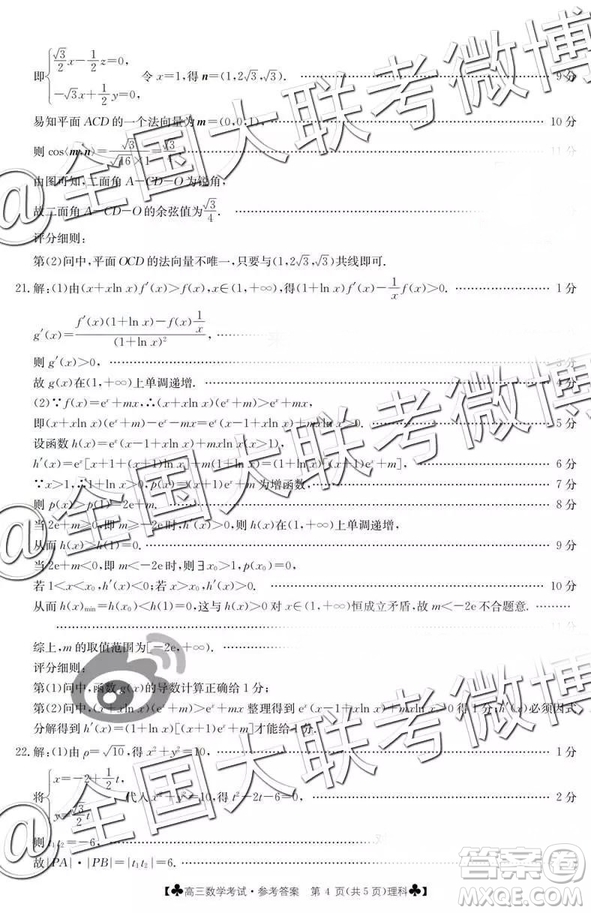 即{√3/2x-1/2z=0, -√3x+1/2y=0, 令x=1,得n=(1,2√3,√3). 9分
易知平面ACD的一个法向量为m=(0,0,1), 10分
则cos⟨m,n⟩=√3/√16×1=√3/4
由图可知,二面角A-CD-O为锐角,
故二面角A-CD-O的余弦值为√3/4.
评分细则:
第(2)问中,平面OCD的法向量不唯一,只要与(1,2√3,√3)共线即可.
21.解:(1)由(x+xln x)f′(x)>f(x),x∈(1,+∞),得(1+ln x)f′(x)-1/xf(x)>0. 1分
g′(x)=f′(x)(1+ln x)-f(x)1/x/(1+ln x)²
则g′(x)>0, 3分
故g(x)在(1,+∞)上单调递增.
(2)∵f(x)=eˣ+mx,∴(x+xln x)(eˣ+m)>eˣ+mx,
即(x+xln x)(eˣ+m)-eˣ-mx>0,即eˣ(x-1+xln x)+mxln x>0. 5分
设函数h(x)=eˣ(x-1+xln x)+mxln x(x>1),
h′(x)=eˣ[x+1+(1+x)ln x]+m(1+ln x)=(1+ln x)[(x+1)eˣ+m]. 6分
∵x>1,∴1+ln x>0,p(x)=(x+1)eˣ+m为增函数, 7分
则p(x)>p(1)=2e+m. 8分
当2e+m≥0,即m≥-2e时,h′(x)>0,则h(x)在(1,+∞)上单调递增,
从而h(x)>h(1)=0. 9分
当2e+m<0,即m<-2e时,则∃x₀>1,h′(x₀)=0,
若1<x<x₀,h′(x)<0;若x>x₀,h′(x)>0. 10分
从而h(x)min=h(x₀)<h(1)=0,这与h(x)>0对x∈(1,+∞)恒成立矛盾,故m<-2e不合题意.
综上,m的取值范围为[-2e,+∞).
评分细则:
第(1)问中,函数g(x)的导数计算正确给1分;
第(2)问中,将(x+xln x)(eˣ+m)>eˣ+mx整理得到eˣ(x-1+xln x)+mxln x>0给1分,h′(x)必须因式
分解得到h′(x)=(1+ln x)[(x+1)eˣ+m]才能给1分.
22.解:(1)由ρ=√10,得x²+y²=10, 1分
将{x=-2+1/2t, y=√3/2t 代入x²+y²=10,得t²-2t-6=0, 2分
则t₁t₂=-6,
故|PA|·|PB|=|t₁t₂|=6.
♣高三数学考试·参考答案 第4页(共5页)理科♣
@全国大联考微博
@全国大联考微博
@全国大联考微博
答案圈
MXQE.COM